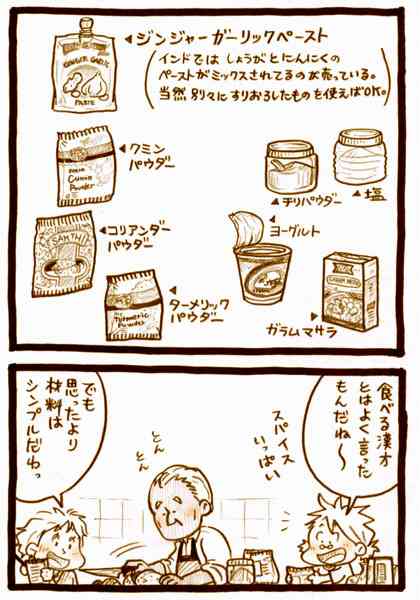 ◀ジンジャーガーリックペースト
インドでは しょうがとにんにくの
ペーストがミックスされてるのが売っている。
当然 別々にすりおろしたものを使えばOK。
GINGER GARLIC
PASTE
◀クミン
パウダー
Cumin
Powder
▲チリパウダー
▲塩
◀コリアンダー
パウダー
◀ヨーグルト
◀ターメリック
パウダー
Turmeric
Powder
ガラムマサラ
食べる漢方
とはよく言った
もんだね〜
スパイス
いっぱい
とん
とん
でも
思ったより
材料は
シンプルだわっ